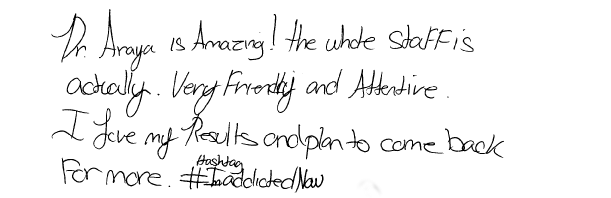 Dr. Araya is Amazing! the whole staff is
actually. Very Friendly and Attentive.
I love my Results and plan to come back
For more. Hashtag #ImaddictedNow